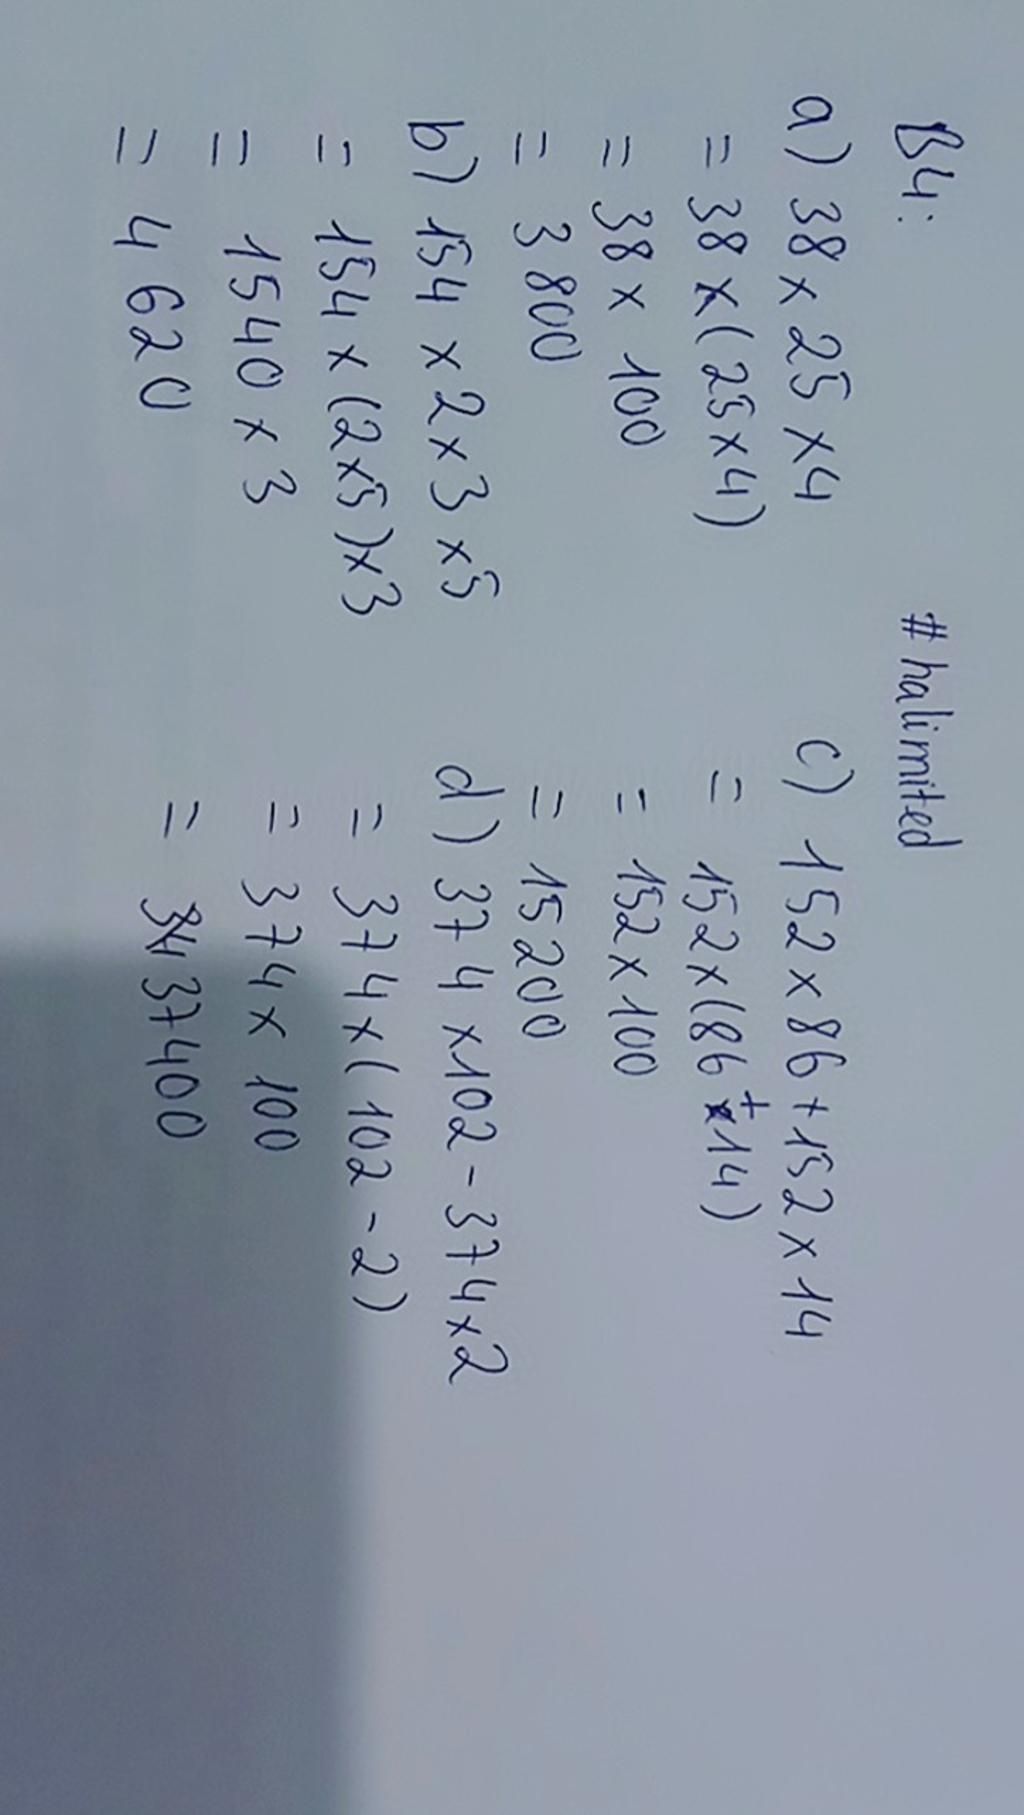 B4: #halimited
a) 38 x 25 x 4
= 38 x (25 x 4)
= 38 x 100
= 3 800
b) 154 x 2 x 3 x 5
= 154 x (2 x 5) x 3
= 1540 x 3
= 4 620
c) 152 x 86 + 152 x 14
= 152 x (86 + 14)
= 152 x 100
= 15200
d) 374 x 102 - 374 x 2
= 374 x (102 - 2)
= 374 x 100
= 37400